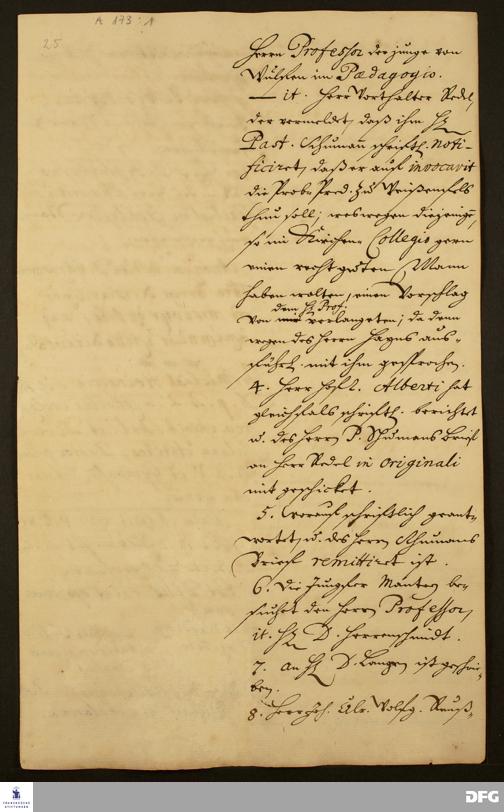 A 173 : 1
25
Herrn Professor der junge von
Wulffen im Pædagogio.
— it. Herr Vorsthalter Redel,
der vermeldet, daß ihm H.
Past. Schumañ schriftl. noti-
ficiret, daß er auf invocavit
die Probe Pred. zu Weißenfels
thun soll; weswegen diejenige,
so im Kirchen-Collegio gern
einen recht guten Mann
haben wolten, einen Vorschlag
dem H. Prof.
von verlangeten; da denn
wegen des Herrn Hagens aus-
führl. mit ihm gesprochen.
4. Herr Alberti hat
gleichfals schriftl. berichtet
u. des Herrn P. Schumans Brief
an Herr Redel in originali
mit geschicket.
5. Worauf schriftlich geant-
wortet, u. des Herrn Schumans
Brief remittiret ist.
6. Die Jungfer Manten be-
suchet den Herrn Professor,
it. H. D. Herrnschmidt.
7. An H. D. Langen ist geschrie-
ben.
8. Herr Joh. Ulr. Wolfg.
FRANCKESCHE STIFTUNGEN
DFG